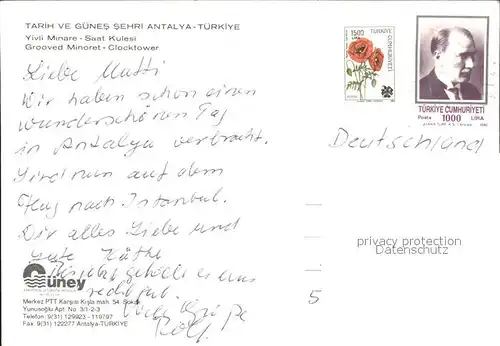 TARİH VE GÜNEŞ ŞEHRİ ANTALYA - TÜRKİYE
Yivli Minare - Saat Kulesi
Grooved Minoret - Clocktower
Liebe Mutti
Wir haben schon einen
wunderschönen Tag
in Antalya verbracht.
Sind nun auf dem
Flug nach Istanbul.
Dir alles Liebe und
gute Käthe
gefällt es uns
recht gut.
Viele Grüße
Rolf
Güney
Merkez PTT Karşısı Kışla mah. 54. Sokak
Yunusoğlu Apt. No: 3/1-2-3
Telefon: 9(31) 129923 - 119797
Fax: 9(31) 122277 Antalya-TÜRKİYE
1500 LİRA
TÜRKİYE CUMHURİYETİ
TÜRKİYE CUMHURİYETİ
Posta 1000 LİRA
Deutschland
privacy protection
Datenschutz
5